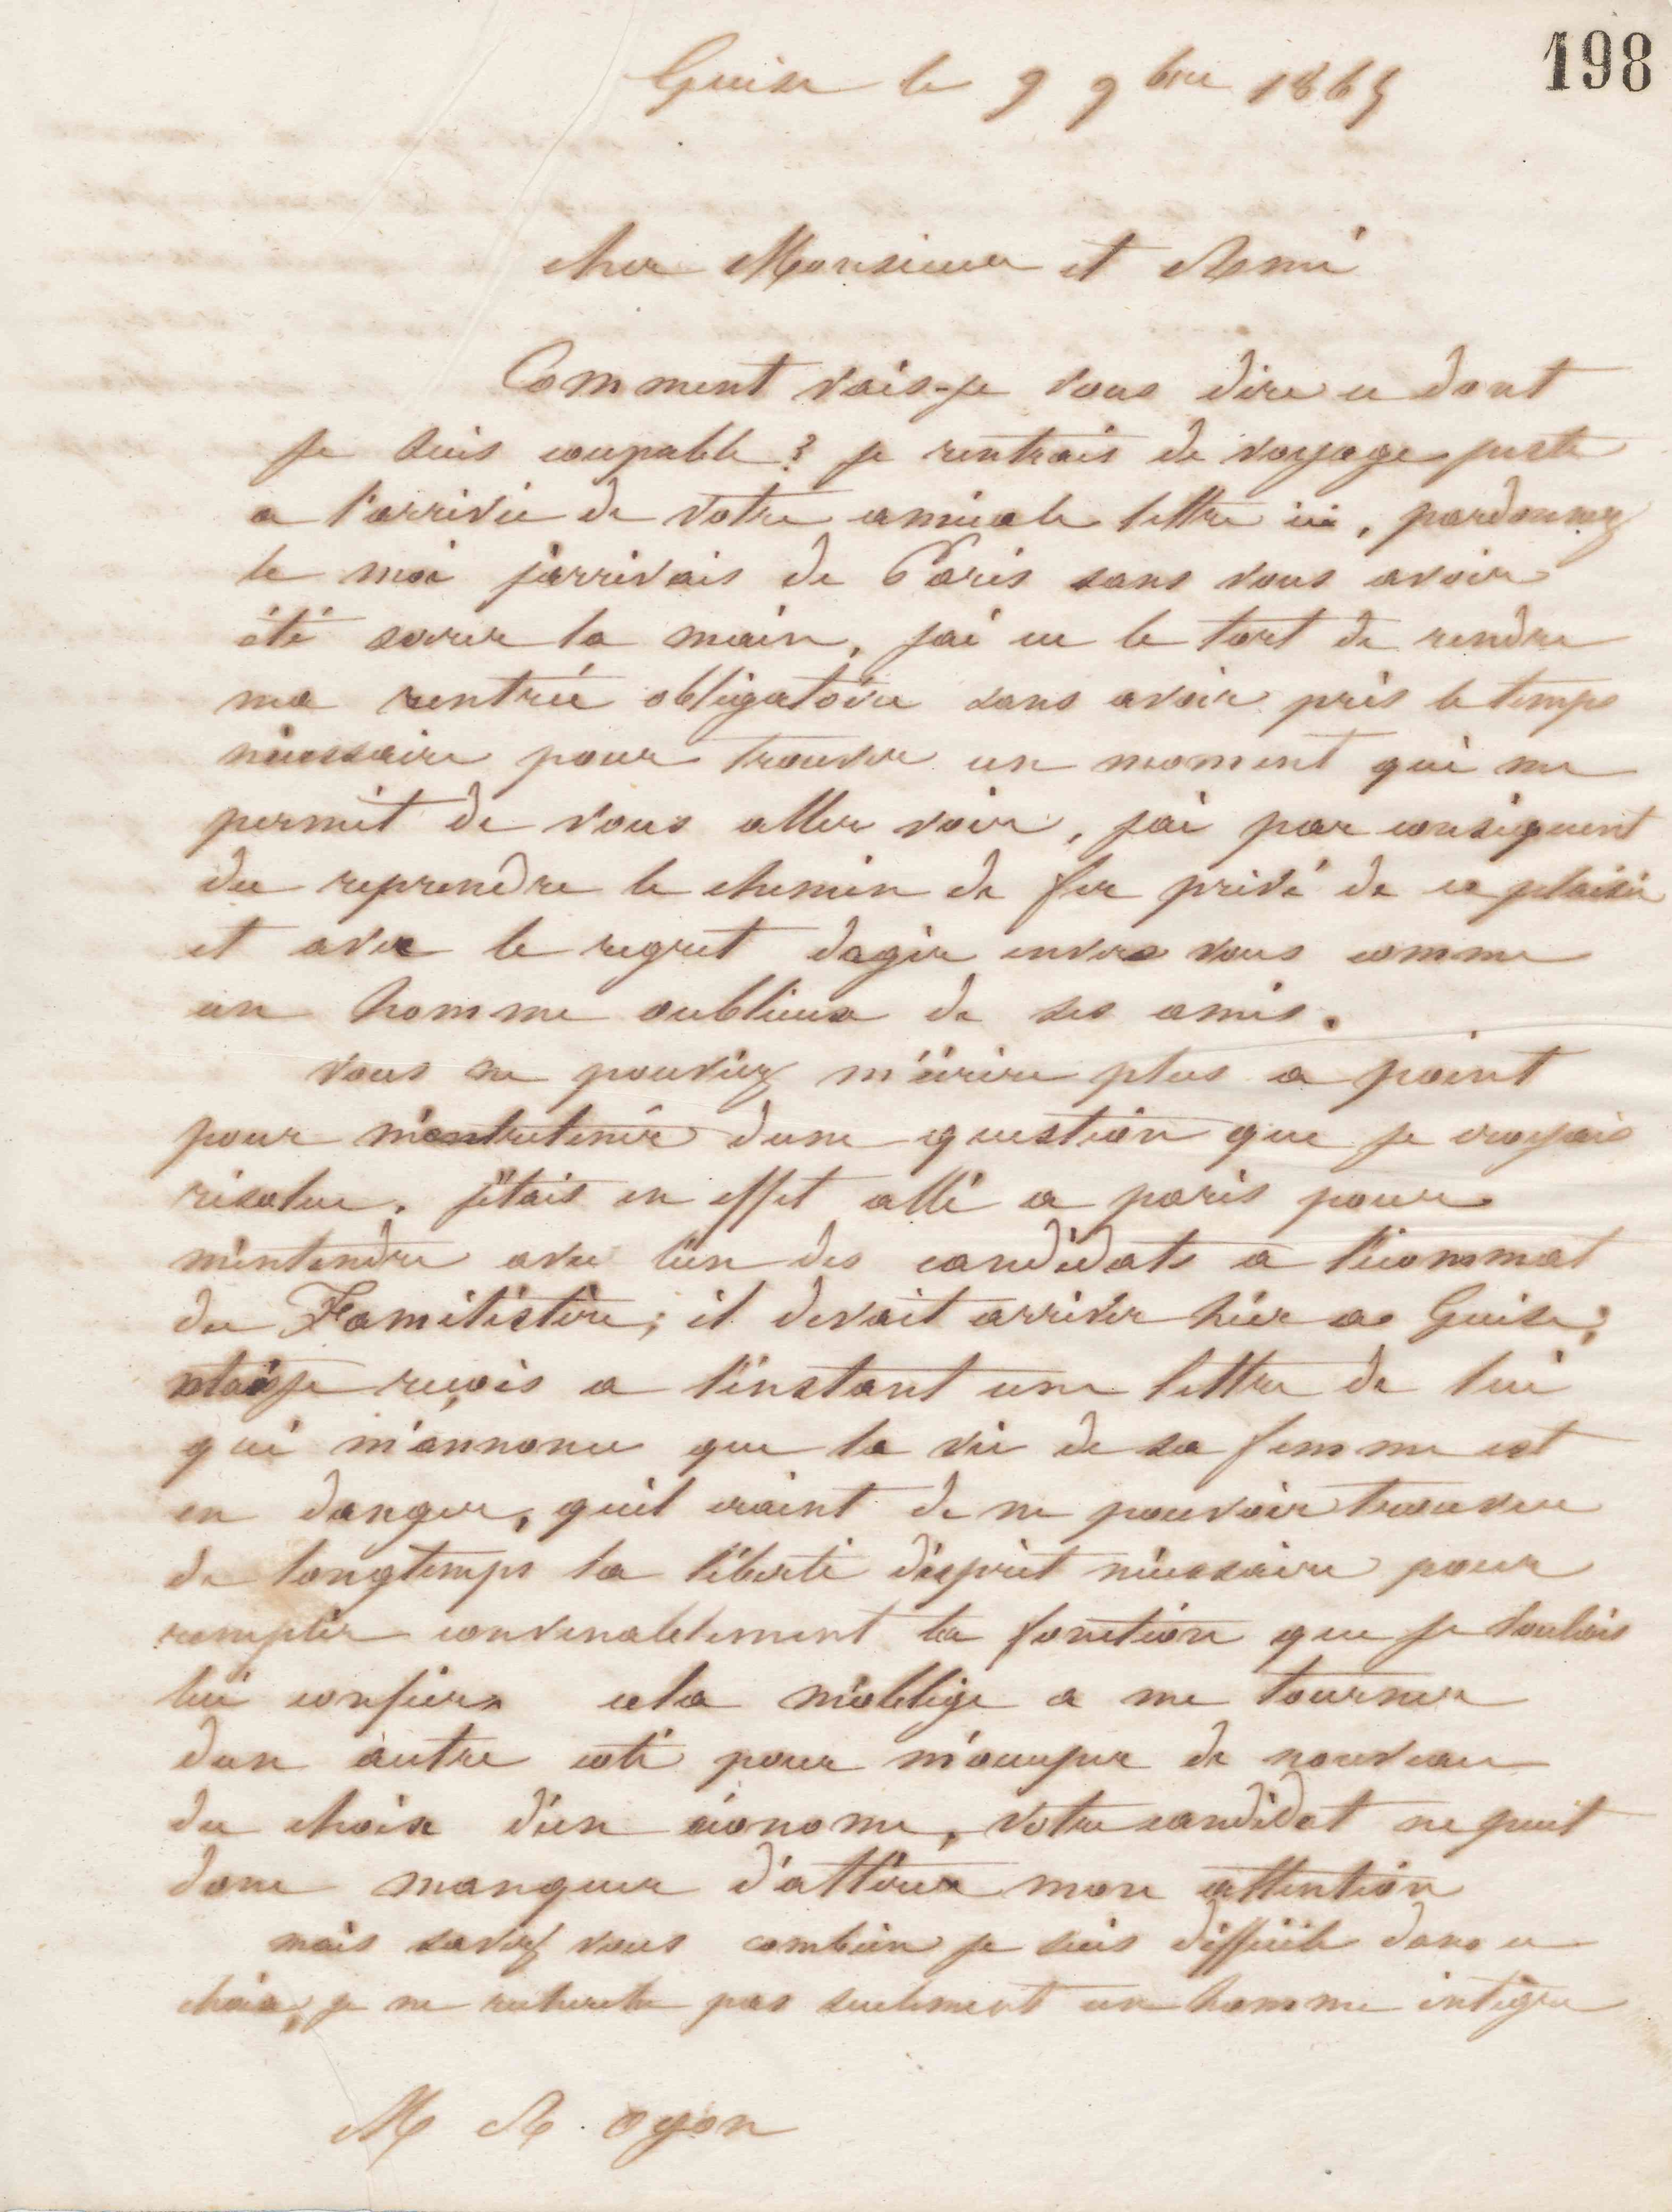 198
Guise le 9 9bre 1865
cher Monsieur et Ami
Comment vais-je vous dire ce dont
je suis coupable ? je rentrais de voyage juste
a l'arrivée de votre amicale lettre ici, pardonnez
le moi j'arrivais de Paris sans vous avoir
été serrer la main, j'ai eu le tort de rendre
ma rentrée obligatoire sans avoir pris le temps
nécessaire pour trouver un moment qui me
permit de vous aller voir, j'ai par conséquent
du reprendre le chemin de fer privé de ce plaisir
et avec le regret d'agir envers vous comme
un homme oublieux de ses amis.
vous ne pouviez m'écrire plus a point
pour m'entretenir d'une question que je croyais
résolue. j'étais en effet allé a paris pour
m'entendre avec l'un des candidats a l'économat
du Familistère ; il devait arriver hier a Guise ;
mais je reçois a l'instant une lettre de lui
qui m'annonce que la vie de sa femme est
en danger, qu'il craint de ne pouvoir trouver
de longtemps la liberté d'esprit nécessaire pour
remplir convenablement la fonction que je voulais
lui confier. cela m'oblige a me tourner
d'un autre coté pour m'occuper de nouveau
du choix d'un économe, votre candidat ne peut
donc manquer d'attirer mon attention
mais savez vous combien je suis difficile dans ce
choix, je ne recherche pas seulement un homme intègre
M A. oyon